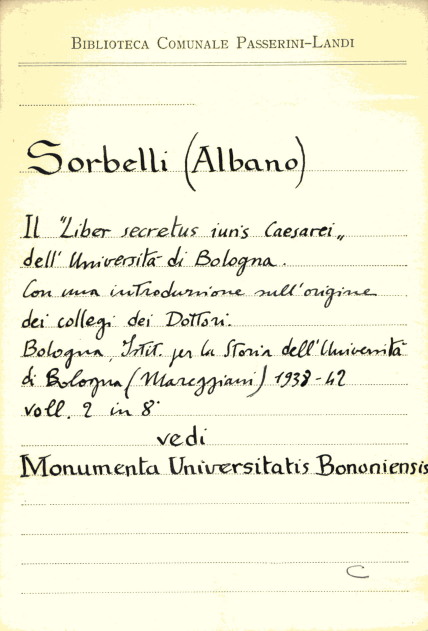 BIBLIOTECA COMUNALE PASSERINI-LANDI
Sorbelli (Albano)
Il "Liber secretus iuris Caesarei„
dell'Università di Bologna.
Con una introduzione sull'origine
dei collegi dei Dottori.
Bologna, Istit. per la Storia dell'Università
di Bologna (Mareggiani) 1938-42
voll. 2 in 8°
vedi
Monumenta Universitatis Bononiensis
C